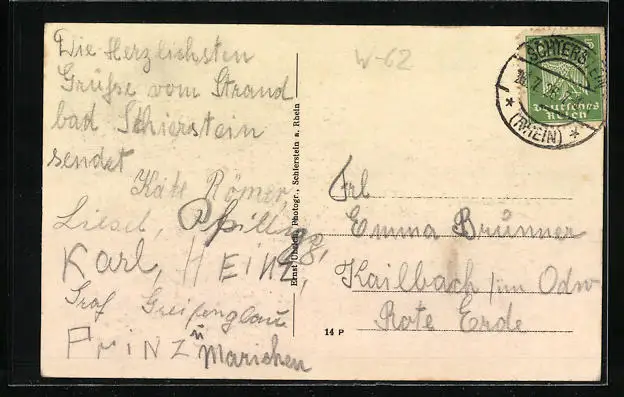 Die Herzlichsten
Grüsse vom Strand
bad Schierstein
sendet
Käte Römer,
Liesel,
Karl, HEINZ,
Graf Greifenglau
PrinZ u Mariechen
Photogr., Schierstein a. Rhein
14 P
W-62
SCHIERSTEIN
(RHEIN)
Deutsches
Reich
Frl
Emma Brünner
Kailbach/im Odw
Rote Erde